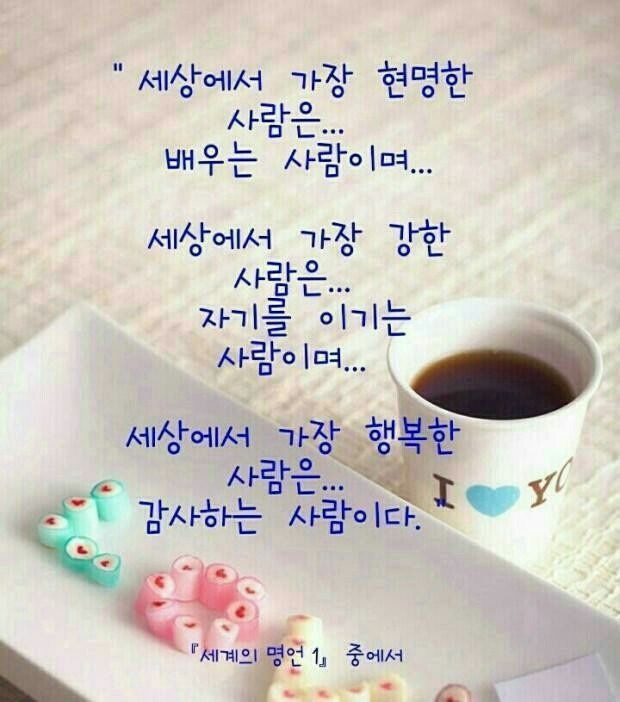 " 세상에서 가장 현명한
사람은...
배우는 사람이며...
세상에서 가장 강한
사람은...
자기를 이기는
사람이며...
세상에서 가장 행복한
사람은...
감사하는 사람이다.
"
I YO
『세계의 명언 1』 중에서